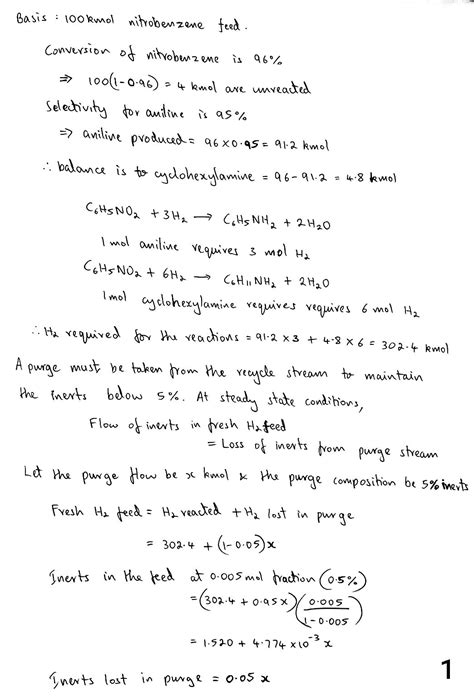 Basis : 100 kmol nitrobenzene feed.
Conversion of nitrobenzene is 96%
⇒ 100(1-0.96) = 4 kmol are unreacted
Selectivity for aniline is 95%
⇒ aniline produced = 96 x 0.95 = 91.2 kmol
∴ balance is to cyclohexylamine = 96 - 91.2 = 4.8 kmol
C6H5NO2 + 3H2 → C6H5NH2 + 2H2O
1 mol aniline requires 3 mol H2
C6H5NO2 + 6H2 → C6H11NH2 + 2H2O
1mol cyclohexylamine requires requires 6 mol H2
∴ H2 required for the reactions = 91.2 x 3 + 4.8 x 6 = 302.4 kmol
A purge must be taken from the recycle stream to maintain
the inerts below 5%. At steady state conditions,
Flow of inerts in fresh H2 feed
= Loss of inerts from purge stream
Let the purge flow be x kmol & the purge composition be 5% inerts
Fresh H2 feed = H2 reacted + H2 lost in purge
= 302.4 + (1-0.05)x
Inerts in the feed at 0.005 mol fraction (0.5%)
= (302.4 + 0.95x)(0.005/1-0.005)
= 1.520 + 4.774 x 10^-3 x
Inerts lost in purge = 0.05 x
1